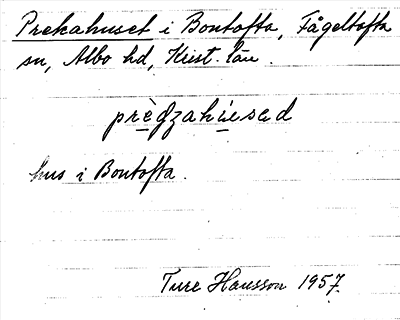 Prekahuset i Bontofta, Fågeltofta
sn, Albo hd, Krist. län.
prègzahúesad
hus i Bontofta.
Ture Hansson 1957.